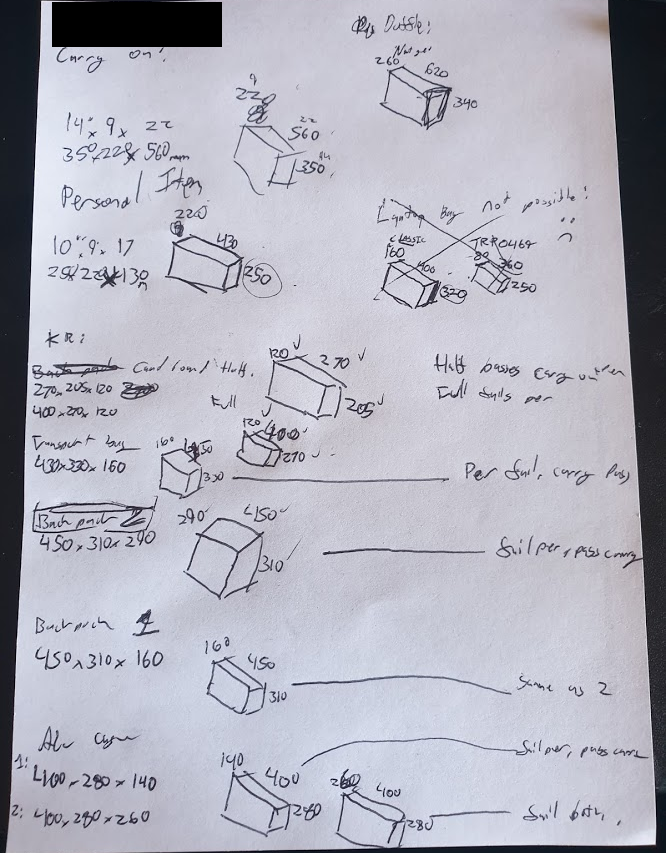 Carry on:
Duffle:
260 620
340
9
220
22
560
14
350
14" x 9 x 22
350 x 220 x 560 mm
Personal Item
220
430
250
10" x 9 x 17
not possible!
Bag
CLASSIC
160 400
320
80 360
250
KR:
Half.
270 x 205 x 120
400 x 270 x 120
Full
120 ✓ 270 ✓
205 ✓
120 ✓ 400 ✓
270 ✓
Half passes carry on then
Full fails per
Transport bag
430 x 330 x 160
160
330
Per fail, carry pass
Back pack 2
450 x 310 x 290
290 450 ✓
310 ✓
fail per, pass carry
Back pack 1
450 x 310 x 160
160 450
310
Same as 2
1: 400 x 280 x 140
140 400
280
fail per, pass carry
2: 400 x 280 x 260
260 400
280
fail both.